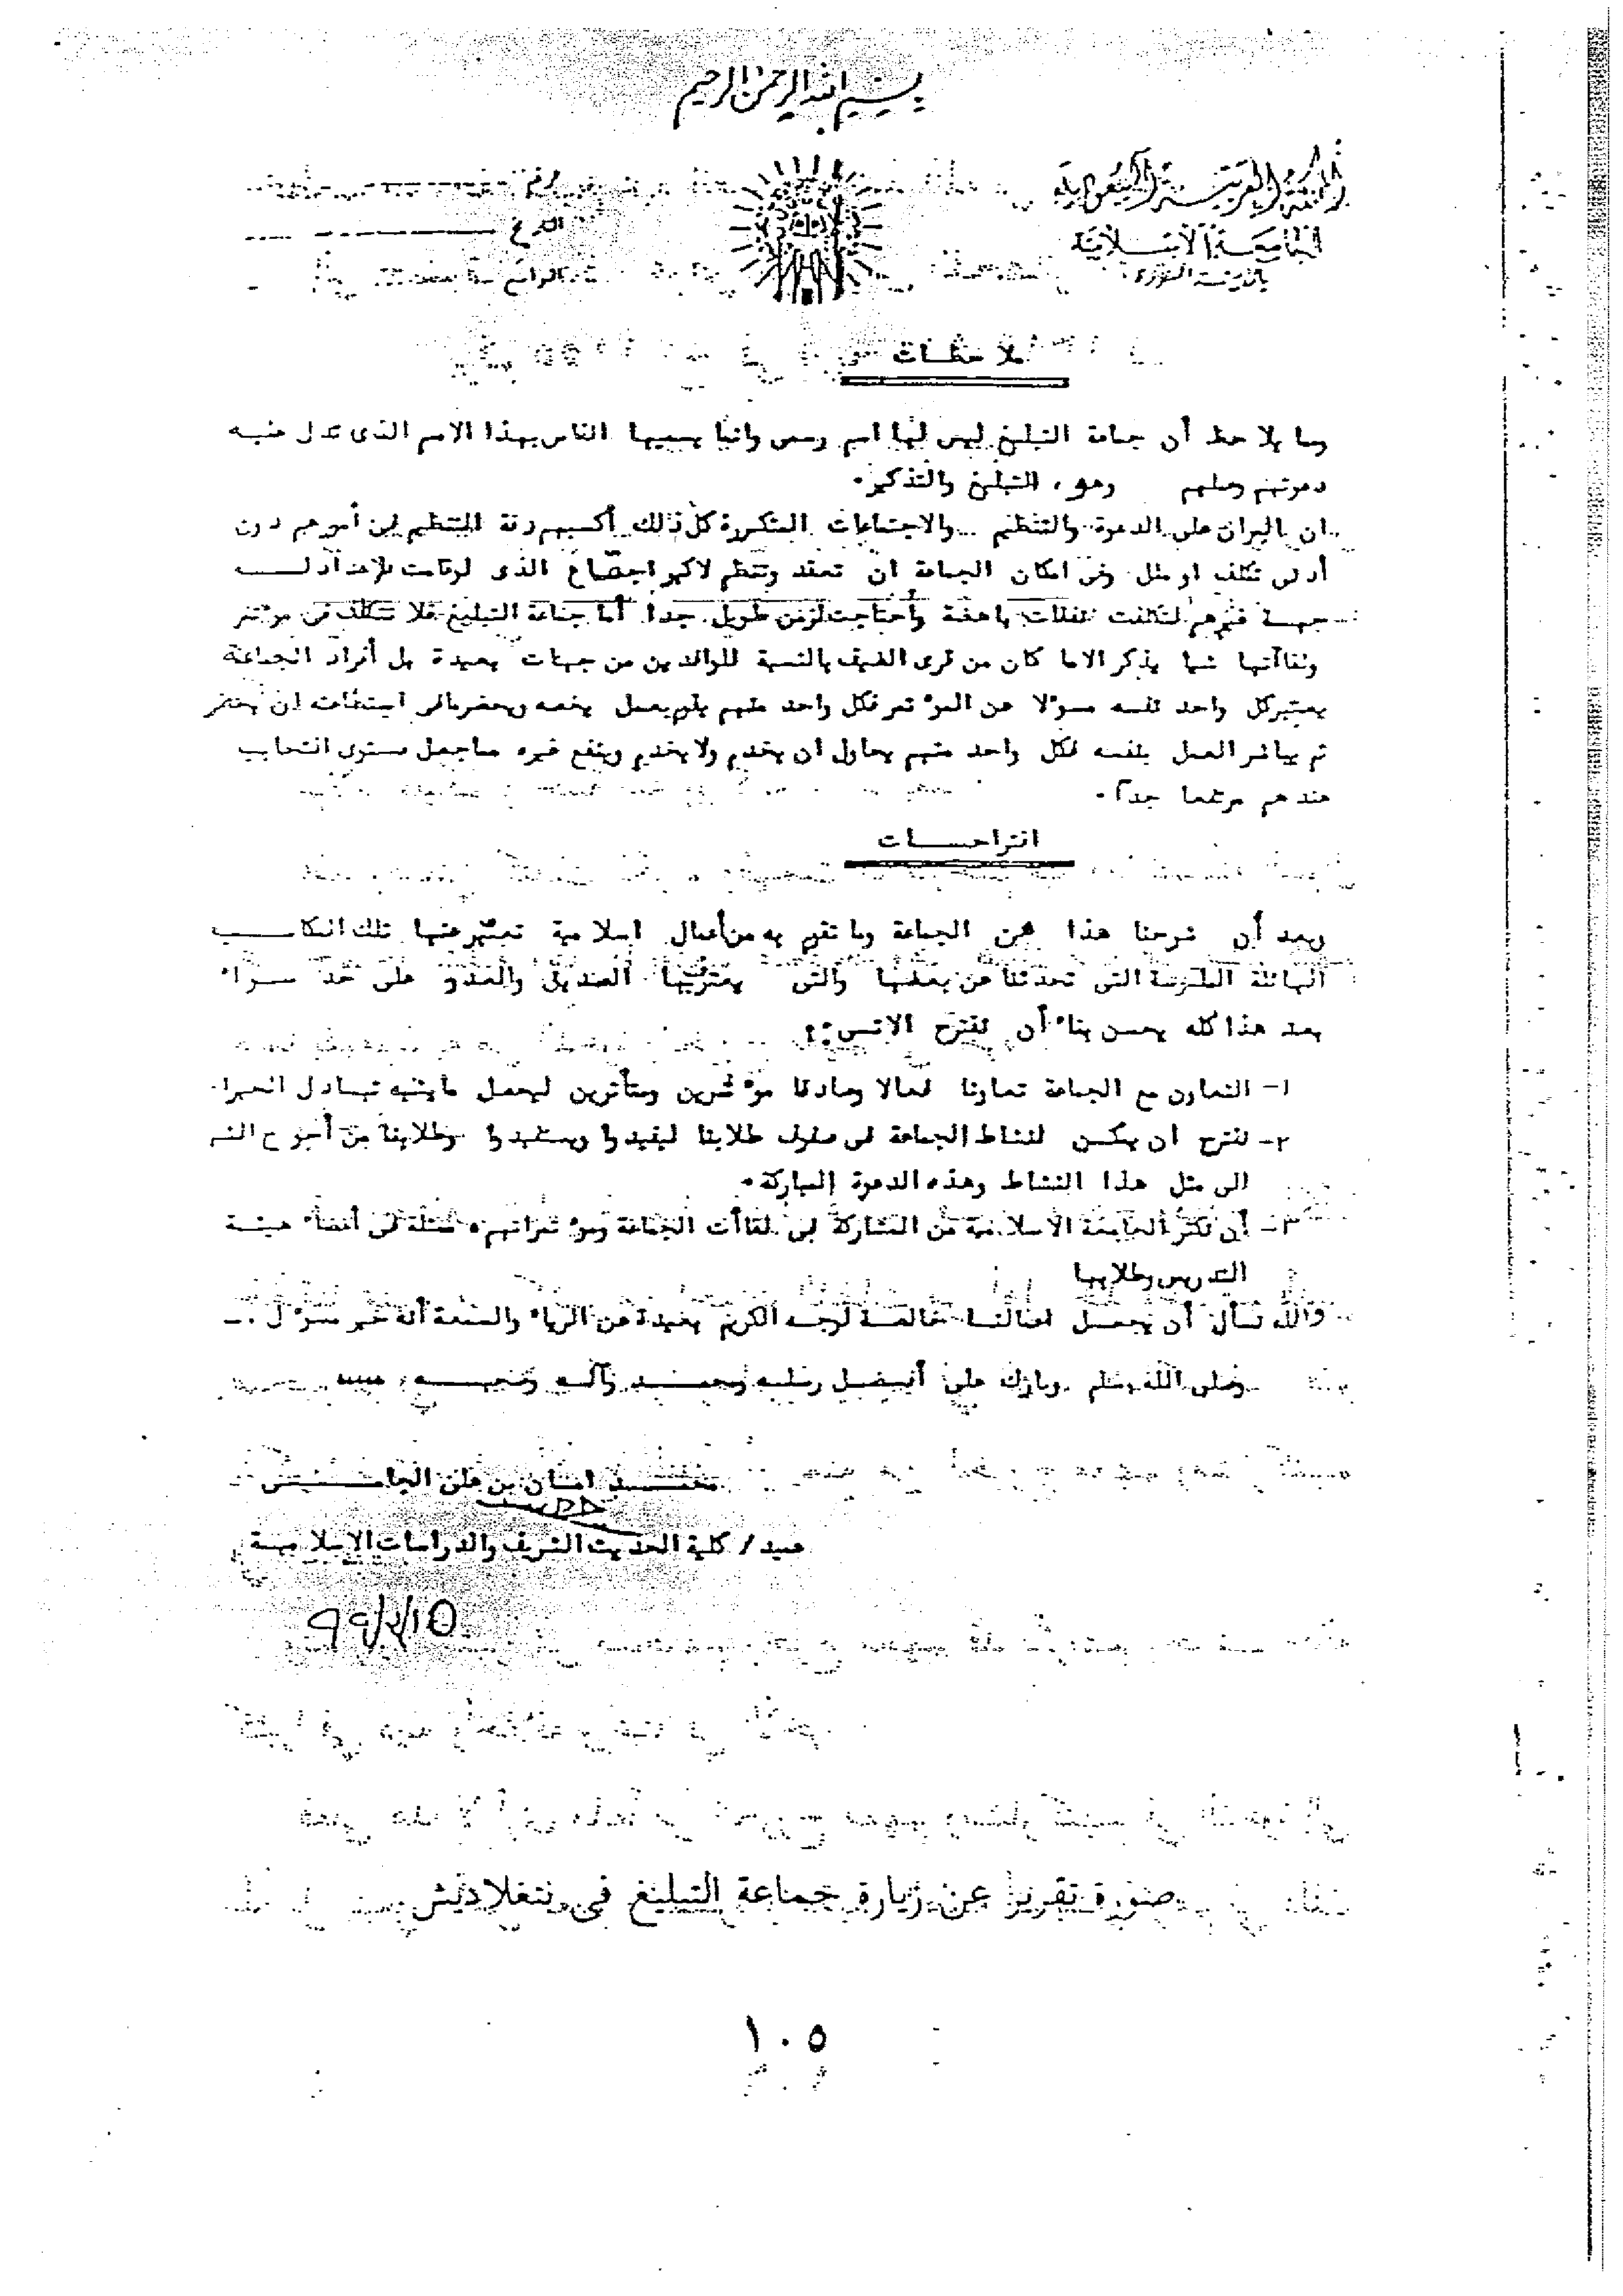 بسم الله الرحمن الرحيم
المملكة العربية السعودية
الجامعة الاسلامية
بالمدينة المنورة
الرقم
التاريخ
ملاحظات
وما يلاحظ أن جماعة التبليغ ليس لها اسم رسمى وانما يسميها الناس بهذا الاسم الذى تدل عليه
دعوتهم وعملهم وهو، التبليغ والتذكير.
ان المران على الدعوة والتنظيم والاجتماعات المتكررة كل ذلك أكسبهم دقة التنظيم فى أمورهم دون
أدنى تكلف او ملل وفى امكان الجماعة ان تعقد وتنظم لاكبر اجتماع الذى لو قامت للإعداد لـــه
جهـة غيرهم لتكلفت نفقات باهضة وأحتاجت لزمن طويل جدا أما جماعة التبليغ فلا تتكلف فى مؤتمر
ولقاآتها شيا يذكر الاما كان من قرى الضيف بالنسبة للوافدين من جهات بعيدة بل أفراد الجماعة
يعتبركل واحد نفسه مسؤلا عن المؤتمر فكل واحد منهم يقوم بعمل يخصه ويحضرمافى استطاعته ان يحضر
ثم يباشر العمل بنفسه فكل واحد منهم يحاول ان يخدم ولا يخدم وينفع غيره مماجعل مستوى انتحابب
عندهم مرتفعا جدا.
اقتراحـــات
وبعد أن شرحنا هذا عن الجماعة وما تقوم به من أعمال اسلامية تعتبر عنها تلك المكاســـب
الهائلة الملموسة التى تحدثنا عن بعضها والتى يعترف بها الصديق والعدو على حد ســواء
بعد هذا كله يحسن بناء أن نقترح الاتى:
١- التعاون مع الجماعة تعاونا فعالا وصادقا مؤثرين ومتأثرين ليحصل مايشبه تبادل الخبرا
٢- نقترح ان يكـن لنشاط الجماعة فى صفوف طلابنا ليفيدوا ويستفيدوا وطلابنا من أحوج الن
الى مثل هذا النشاط وهذه الدعوة المباركة.
٣- أن تكثر الجامعة الاسلامية من المشاركة فى لقاأت الجماعة ومؤتمراتهم ممثلة فى أعضاء هيئـة
التدريس وطلابها
والله نسأل أن يجعـل اعمالنـا خالصة لوجهه الكريم بعيدة عن الرياء والسمعة أنه خير مسؤل .ــ
وصلى الله وسلم وبارك على أفضـل رسله محمـد وآلـه وصحبـــه
محمــد امـان بن على الجامــى
عميد / كلية الحديث الشريف والدراسات الاسلاميـة
٩٩/٢/١٥
صورة تقرير عن زيارة جماعة التبليغ في بنغلاديش
١٠٥